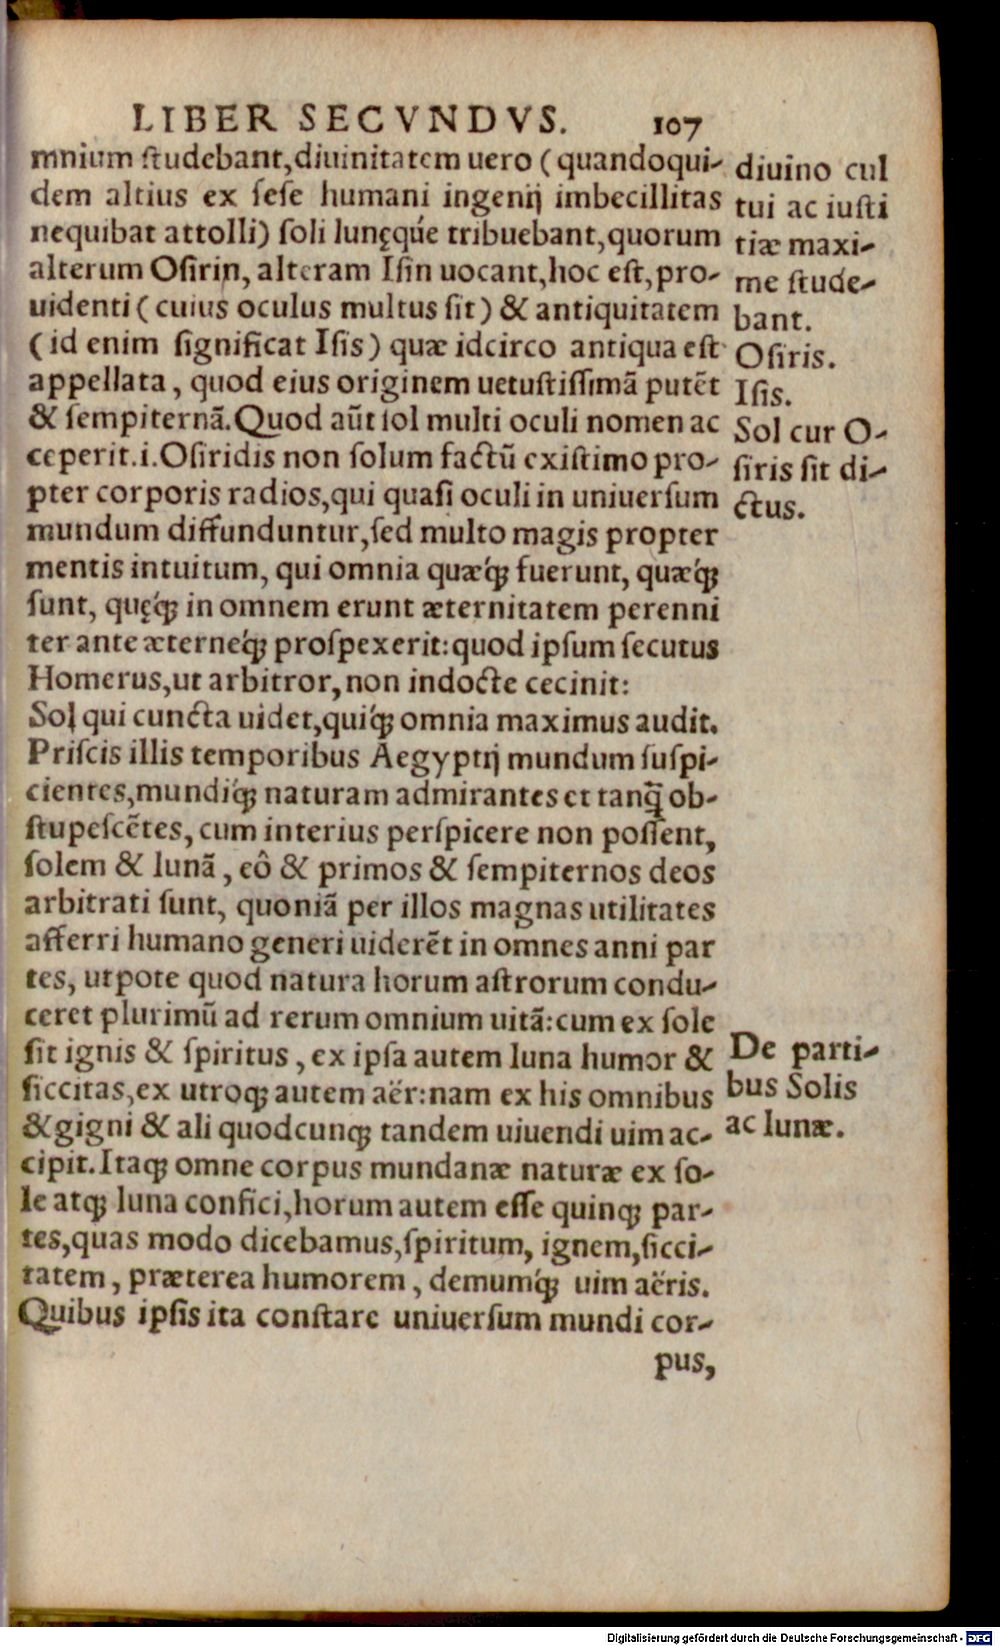 LIBER SECVNDVS. 107
mnium ſtudebant, diuinitatem uero (quandoqui-
dem altius ex ſeſe humani ingenij imbecillitas
nequibat attolli) ſoli lunęqúe tribuebant, quorum
alterum Oſirin, alteram Iſin uocant, hoc eſt, pro-
uidenti (cuius oculus multus ſit) & antiquitatem
(id enim ſignificat Iſis) quæ idcirco antiqua eſt
appellata, quod eius originem uetuſtiſſimā putēt
& ſempiternā. Quod aūt ſol multi oculi nomen ac
ceperit.i. Oſiridis non ſolum factū exiſtimo pro-
pter corporis radios, qui quaſi oculi in uniuerſum
mundum diffunduntur, ſed multo magis propter
mentis intuitum, qui omnia quæq́; fuerunt, quæq́;
ſunt, quęq́; in omnem erunt æternitatem perenni
ter ante æterneq́; proſpexerit: quod ipſum ſecutus
Homerus, ut arbitror, non indocte cecinit:
Sol qui cuncta uidet, quiq́; omnia maximus audit.
Priſcis illis temporibus Aegyptij mundum ſuſpi-
cientes, mundiq́; naturam admirantes et tanq̄ ob-
ſtupeſcētes, cum interius perſpicere non poſſent,
ſolem & lunā, eô & primos & ſempiternos deos
arbitrati ſunt, quoniā per illos magnas utilitates
afferri humano generi uiderēt in omnes anni par
tes, utpote quod natura horum aſtrorum condu-
ceret plurimū ad rerum omnium uitā: cum ex ſole
ſit ignis & ſpiritus, ex ipſa autem luna humor &
ſiccitas, ex utroq; autem aër: nam ex his omnibus
& gigni & ali quodcunq; tandem uiuendi uim ac-
cipit. Itaq; omne corpus mundanæ naturæ ex ſo-
le atq; luna confici, horum autem eſſe quinq; par-
tes, quas modo dicebamus, ſpiritum, ignem, ſicci-
tatem, præterea humorem, demumq́; uim aëris.
Quibus ipſis ita conſtare uniuerſum mundi cor-
pus,
diuino cul
tui ac iuſti
tiæ maxi-
me ſtude-
bant.
Oſiris.
Iſis.
Sol cur O-
ſiris ſit di-
ctus.
De parti-
bus Solis
ac lunæ.
Digitalisierung gefördert durch die Deutsche Forschungsgemeinschaft - DFG